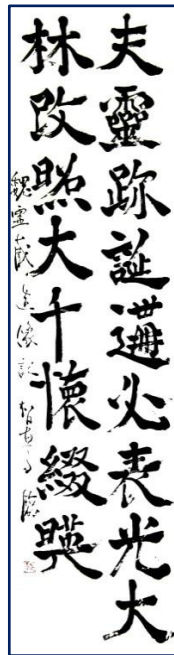 夫靈跡誕遘必表光大
林改照大千懷綴暎
魏靈藏造像記 臨